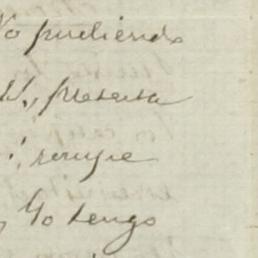 No pudiendo
V., presenta
, rompe
, Yo tengo